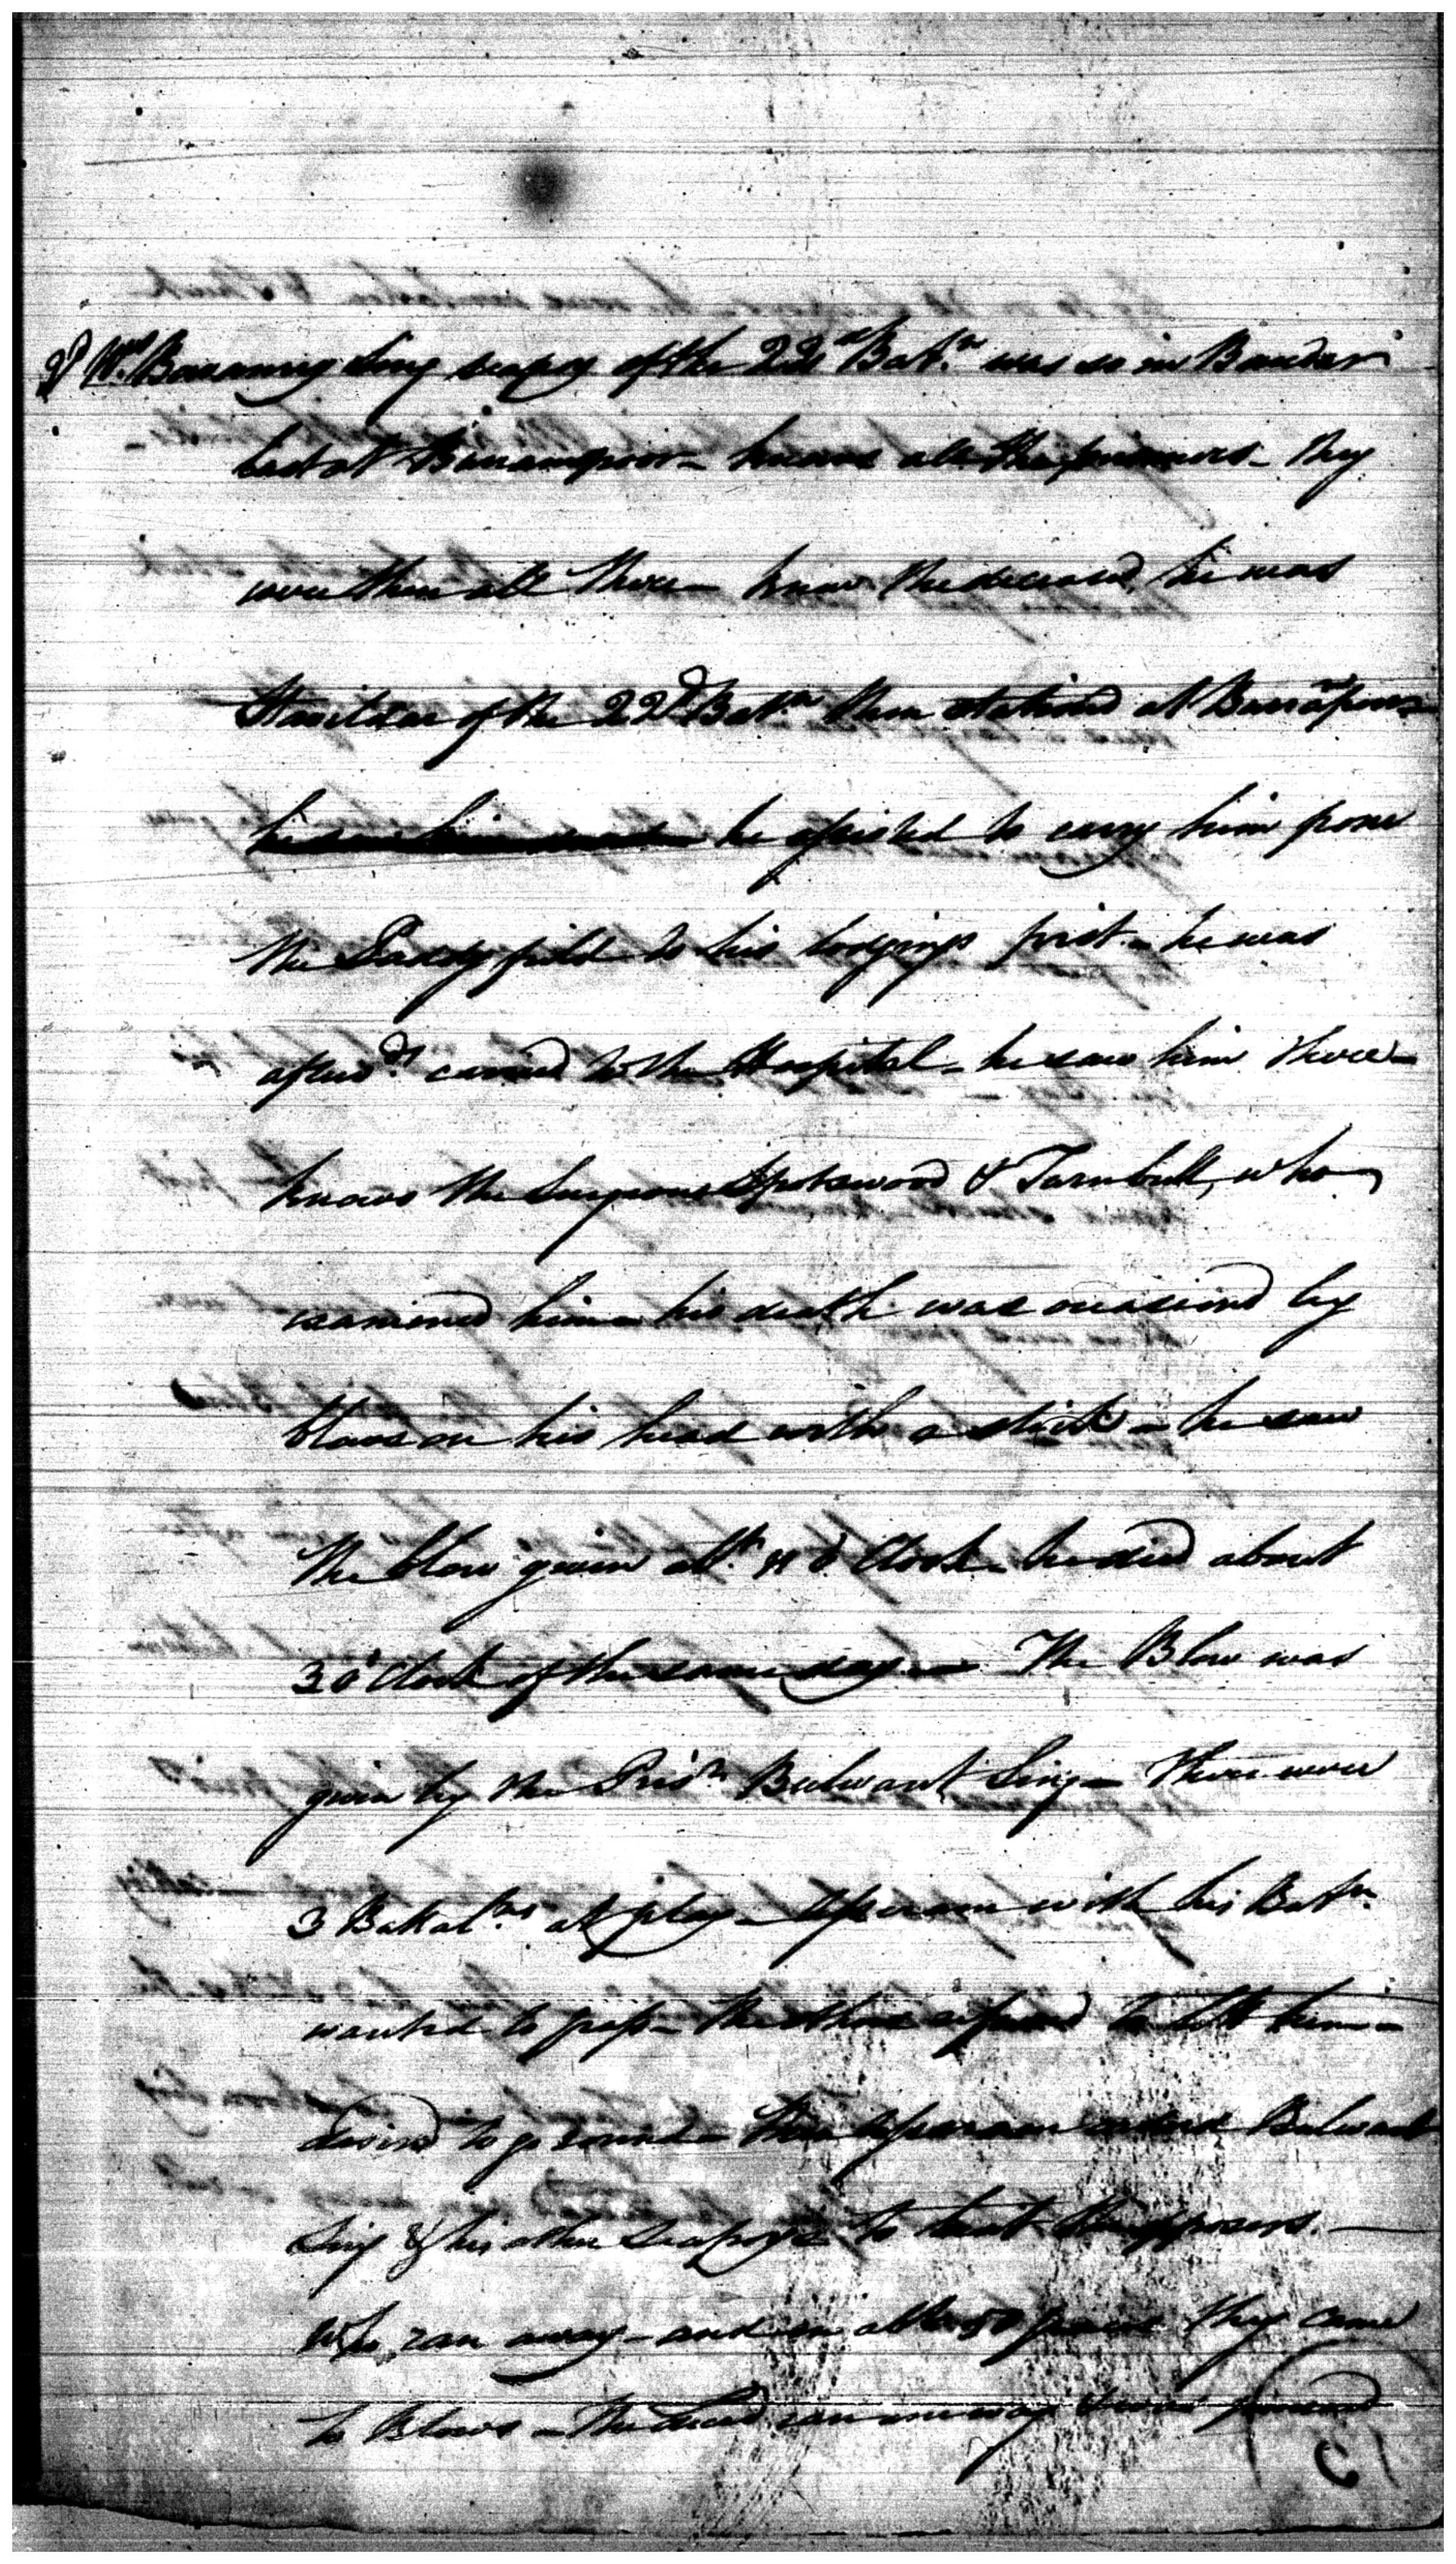 2d Wss. Boranny Sing seapoy of the 22d Batn. was so in
last at Barrampoor - knows all the prisoners - they
were then all there - knew the deceased, he was
Havildar of the 22d Batn. then stationd at Barrampoor
he assisted to carry him from
the Paddy field to his lodgings first - he was
afterwds. carried to the Hospital - he saw him there -
knows the Surgeons Spotswood & Turnbull, who
examined him - his death was occasiond by
blows on his head with a stick - he saw
the blow given abt. o'Clock - he died about
3 o'Clock of the same day - The Blow was
given by the Prisr. Bulwant Sing - There were
3 Battalns. at play - with his Batn.
wanted to pass - the others refused to let him -
desired to go round - then orderd Bulwant
Sing & his other Seapoys to beat the opposers -
who ran away - and in abt 50 paces they came
to Blows - The Decd. ran one way & was pursued